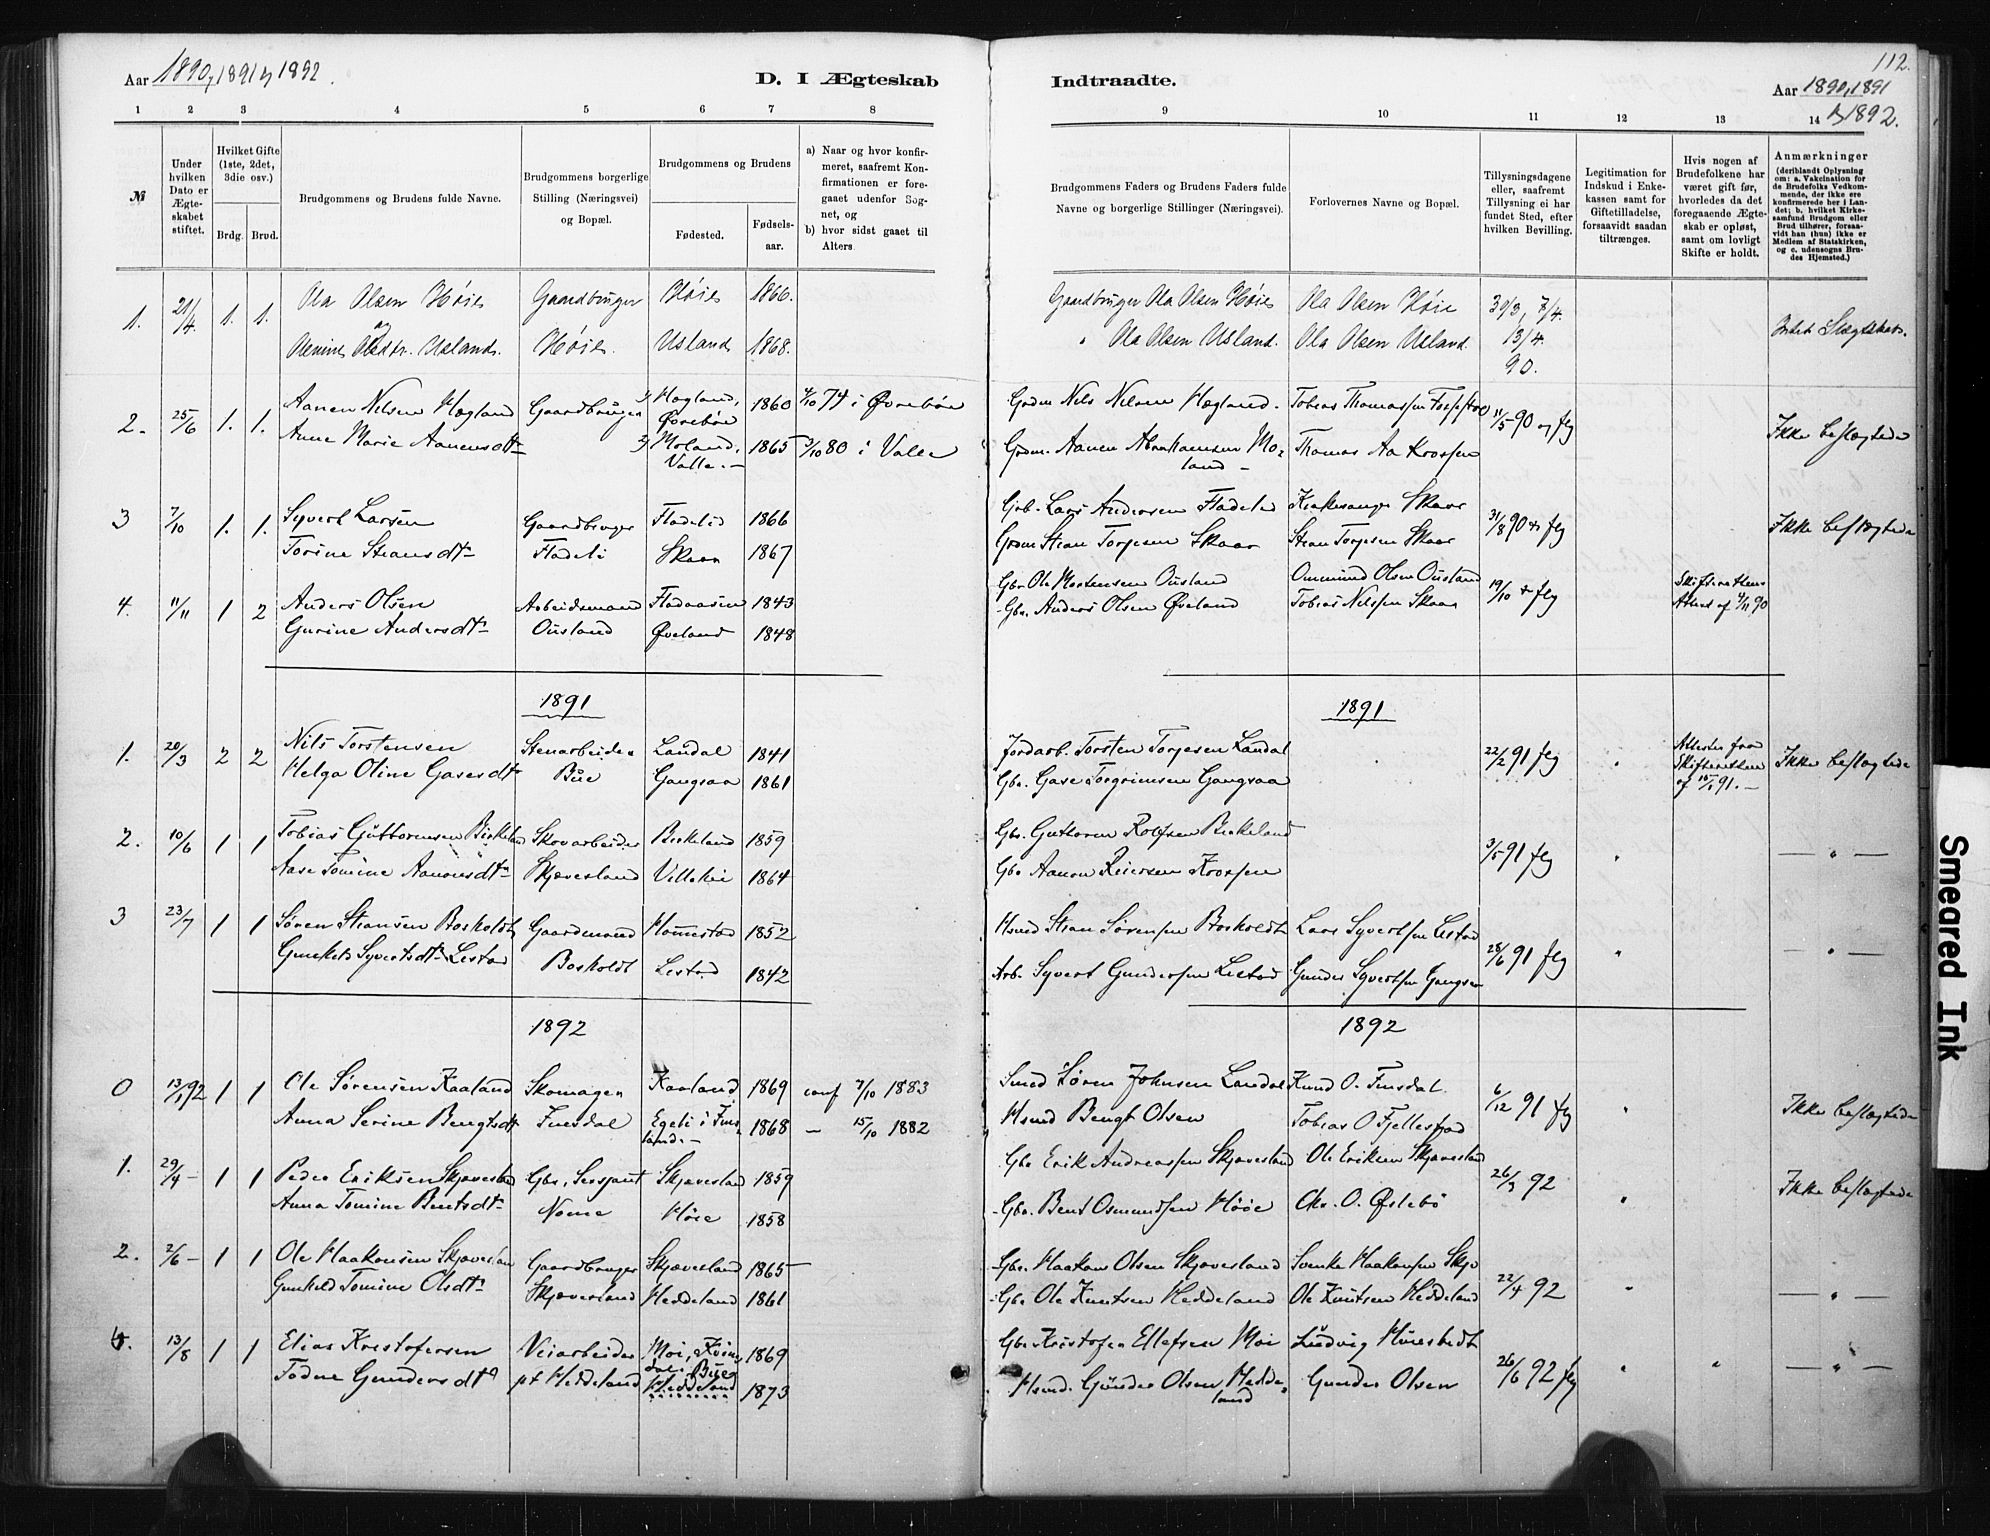 112.
Aar 1890, 1891 og 1892.
D. I Ægteskab Indtraadte.
Aar 1890, 1891
og 1892.
1 2 3 4 5 6 7 8 9 10 11 12 13 14
№
Under hvilken Dato er Ægteskabet stiftet.
Hvilket Gifte (1ste, 2det, 3die osv.)
Brdg. Brud.
Brudgommens og Brudens fulde Navne.
Brudgommens borgerlige Stilling (Næringsvei) og Bopæl.
Brudgommens og Brudens
Fødested. Fødselsaar.
a) Naar og hvor konfirmeret, saafremt Konfirmationen er foregaaet udenfor Sognet, og
b) hvor sidst gaaet til Alters.
Brudgommens Faders og Brudens Faders fulde Navne og borgerlige Stillinger (Næringsvei).
Forlovernes Navne og Bopæl.
Tillysningsdagene eller, saafremt Tillysning ei har fundet Sted, efter hvilken Bevilling.
Legitimation for Indskud i Enkekassen samt for Giftetilladelse, forsaavidt saadan tiltrænges.
Hvis nogen af Brudefolkene har været gift før, hvorledes da det foregaaende Ægteskab er opløst, samt om lovligt Skifte er holdt.
Anmærkninger (deriblandt Oplysning om: a. Vakcination for de Brudefolks Vedkommende, der ikke ere konfirmerede her i Landet; b. hvilket Kirkesamfund Brudgom eller Brud tilhører, forsaavidt han (hun) ikke er Medlem af Statskirken, og c. udensogns Brudes Hjemsted.)
1. 21/4. 1. 1. Ola Olsen Høie Gaardbruger Høie 1866. Gaardbruger Ola Olsen Høie Ola Olsen Høie 30/3, 7/4.
og
Olsdtr. Usland. Høie. Usland 1868. " Ola Olsen Usland. Ola Olsen Usland. 13/4. 90. Slægtskab.
2. 25/6 1. 1. Aanen Nilsen Hægland Gaardbruger 1) Hægland, Øvrebøe 1860 4/10 74 i Øvrebøe Nils Nilsen Hægland. Tobias Thomassen 11/5 90 og flg Ikke beslægtede
Anne Marie Aanensdtr 2) Moland, Valle. 1865 3/10 80 i Valle Aanen Abrahamsen Moland Thomas Aa Krossen
3 7/10 1. 1. Syvert Larsen Gaardbruger Fladeli 1866 Gbr. Lars Andersen Fladeli Kirkesanger Skaar 31/8 90 & flg Ikke beslægtede
Torine Steansdtr Fladeli Skaar 1867 Stean Torjesen Skaar Stean Torjesen Skaar
4. 11/11 1 2 Anders Olsen Arbeidsmand Fladaasen 1843 Gbr Ole Mortensen Ousland Ommund Olsen Ousland 19/10 & flg Skifterettens Attest af 4/11 90
Gurine Andersdtr Ousland Øveland 1848 Gbr. Anders Olsen Øveland Tobias Nilssen Skaar
1891 1891
1. 20/3 2 2 Nils Torstensen Stenarbeider Landal 1841 Jordarb. Torsten Torjesen Landal 22/2 91 flg " Attester fra Skifteretten af 15/1 91. Ikke beslægtede
Helga Oline Gasesdtr Bue Gangsaa 1861 Gbr. Gase Torgrimsen Gangsaa
2. 10/6 1 1 Tobias Guttormsen Birkeland Skovarbeider Birkeland 1859 Gbr. Guthorm Rolfsen Birkeland 3/5 91 flg " — " —
Aase Tomine Aanonsdtr Skjævesland 1864 Gbr Aanon Reiersen Krossen
3 23/7 1 1 Søren Steansen Boskoldt Gaardmand Homestad 1852 Hsmd Stean Sørensen Boskoldt Lars Syvertsen Lestad 28/6 91 flg " — " —
Gunhild Syvertsdtr Lestad Boskoldt Lestad 1842 Arb. Syvert Gundersen Lestad Gunder Syvertsen Gangsaa
1892 1892
0 13/1 92 1 1 Ole Sørensen Kaaland Skomager Kaaland 1869 conf 7/10 1883 Smed Søren Johnsen Landal Knud O. Finsdal 6/12 91 flg " Ikke beslægtede
Anna Serine Bengtsdt Finsdal Egeli i Finsland. 1868 — 15/10 1882 Hsmd Bengt Olsen Tobias O Fjellestad
1. 29/4 — 1 1 Peder Eriksen Skjævesland Gbr, Sersjant Skjævesland 1859 Gbr Erik Andreassen Skjævesland Ole Eriksen Skjævesland 26/3 92 " Ikke beslægtede
Anna Tomine Bentsdtr Nome Høie 1858 Gbr. Bent Osmundsen Høie Chr. O. Øslebø
2. 2/6 — 1 1 Ole Haakonsen Skjævesland Gaardbruger Skjævesland 1865 Gbr. Haakon Olsen Skjævesland Svenke Haakonsen Skjæv 22/4 92 " — " —
Gunhild Tomine Olsdtr Skjævesland Heddeland 1861 Gbr Ole Knutsen Heddeland Ole Knutsen Heddeland
13/8 1 1 Elias Kristofersen Veiarbeider Moi, 1869 Gbr Kristofer Ellefsen Moi Ludvig 26/6 92 flg " " — " —
Todne Gundersdtr pt Heddeland Heddeland 1873 Hsmd. Gunder Olsen Heddeland Gunder Olsen
Smeared Ink